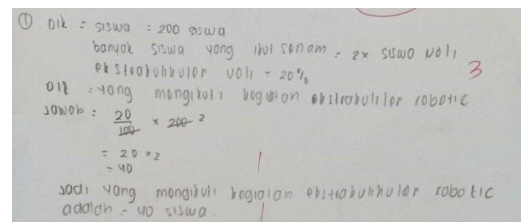 ① Dik = siswa = 200 siswa
banyak siswa yang ikut senam = 2x siswa voli
ekstrakulikuler voli = 20%
3
Dit = yang mengikuti kegiatan ekstrakulikuler robotic
Jawab : 20/100 × 200 2
= 20 × 2
= 40
Jadi yang mengikuti kegiatan ekstrakunkuler robotic
adalah = 40 siswa.